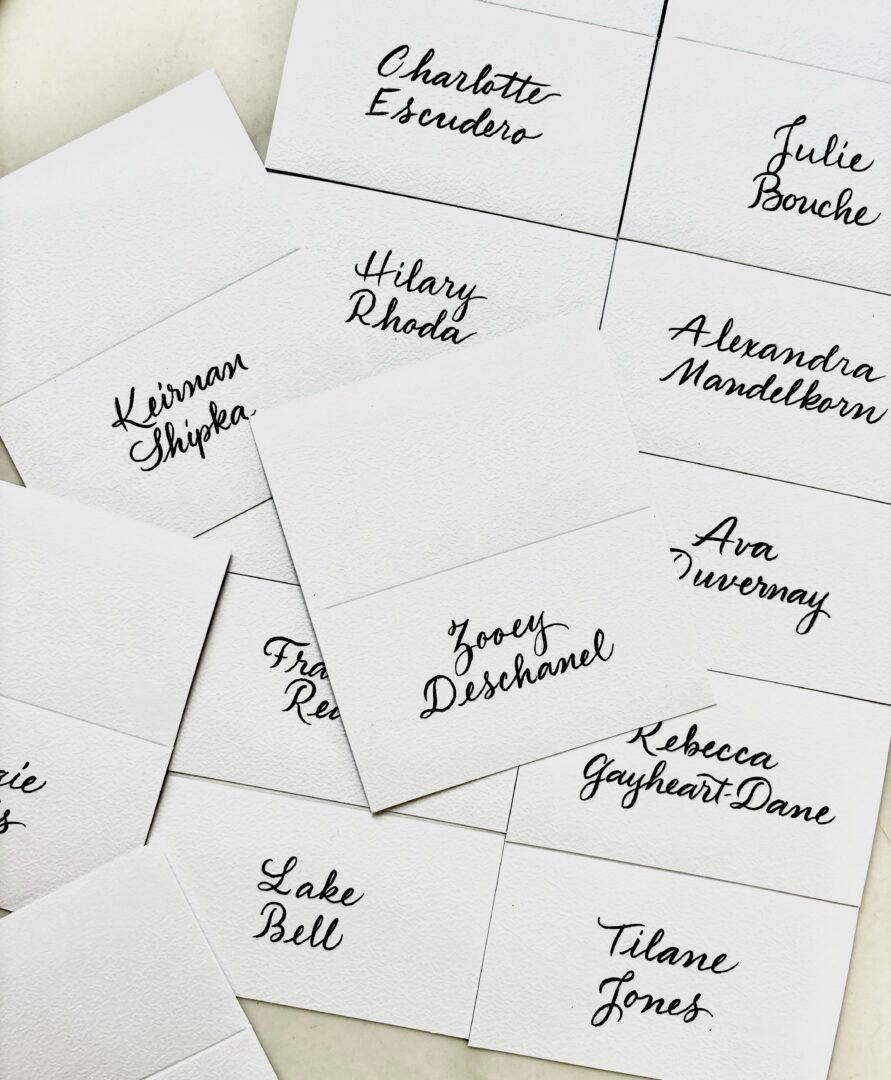 Charlotte
Escudero
Julie
Bouche
Hilary
Rhoda
Alexandra
Mandelkorn
Keirnan
Shipka
Ava
Duvernay
Zooey
Deschanel
Rebecca
Gayheart-Dane
Lake
Bell
Tilane
Jones